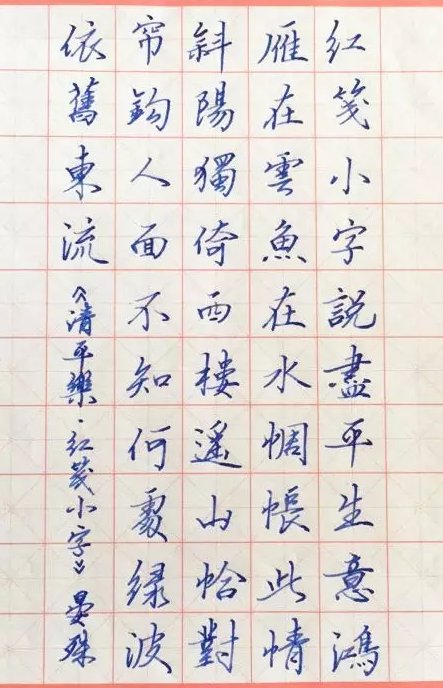 红笺小字説盡平生意鴻
雁在雲魚在水惆悵此情
斜陽獨倚西樓遥山恰對
帘鈎人面不知何處緑波
依舊東流《清平樂·红笺小字》晏殊